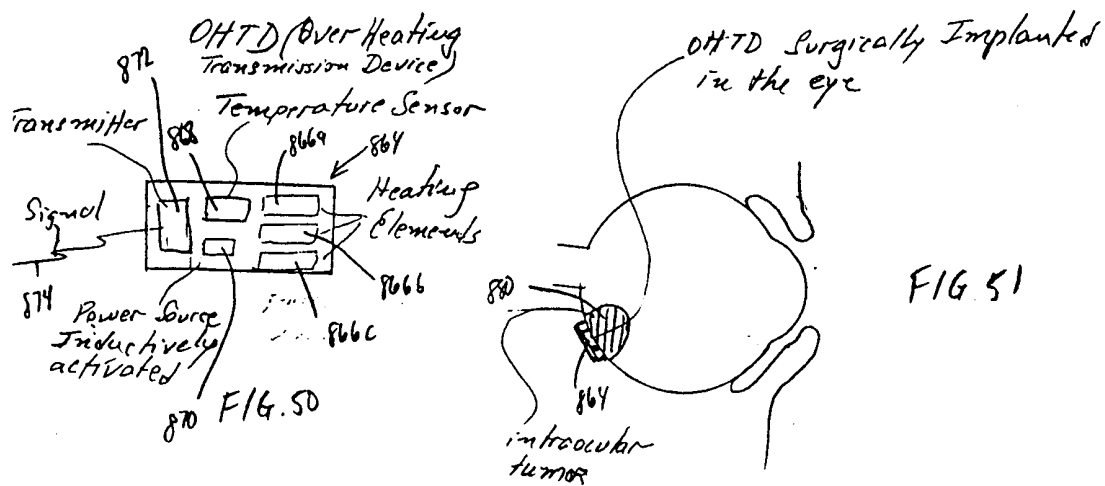 OHTD (Over Heating
Transmission Device)
872
Temperature Sensor
Transmitter
868
866a
864
Heating
Elements
Signal
874
866b
Power Source
Inductively
activated
866c
870
FIG. 50
OHTD Surgically Implanted
in the eye
880
864
intraocular
tumor
FIG. 51